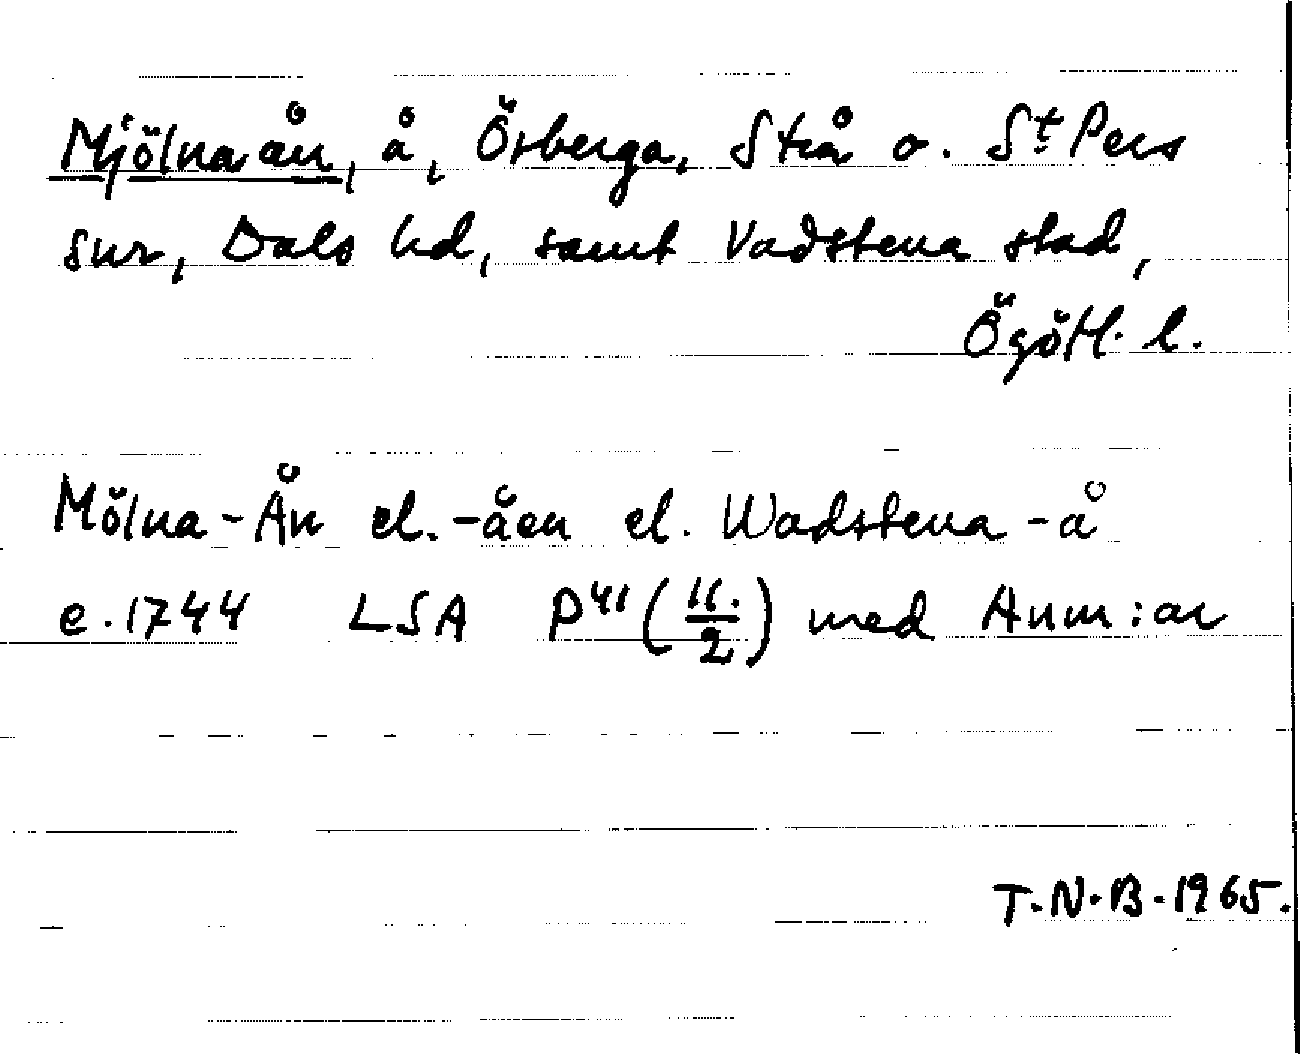 Mjölnaån, å, Örberga, Strå o. St Pers
snr, Dals hd, samt Vadstena stad,
Ögötl. l.
Mölna-Ån el. -åen el. Wadstena-å
e.1744 LSA P41 (11./2) med Anm:ar
T.N.B.1965.